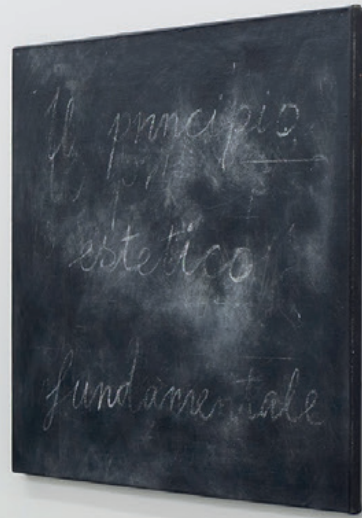 Il principio
estetico
fundamentale